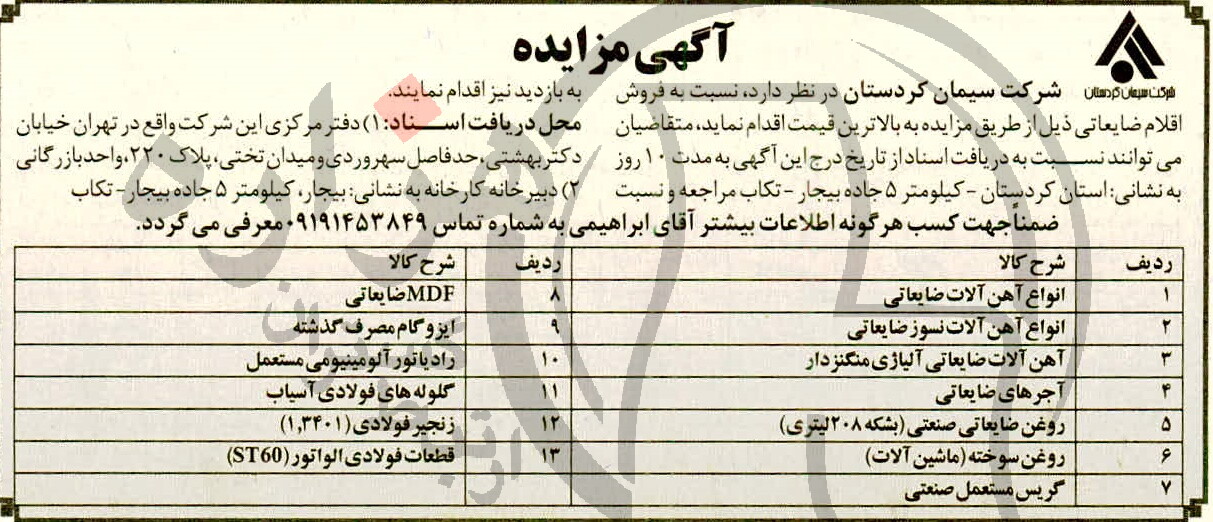 شرکت سیمان کردستان
آگهی مزایده
شرکت سیمان کردستان در نظر دارد، نسبت به فروش
اقلام ضایعاتی ذیل از طریق مزایده به بالاترین قیمت اقدام نماید، متقاضیان
می توانند نسبت به دریافت اسناد از تاریخ درج این آگهی به مدت ۱۰ روز
به نشانی: استان کردستان - کیلومتر ۵ جاده بیجار - تکاب مراجعه و نسبت
به بازدید نیز اقدام نمایند.
محل دریافت اسناد: ۱) دفتر مرکزی این شرکت واقع در تهران خیابان
دکتر بهشتی، حدفاصل سهروردی و میدان تختی، پلاک ۲۲۰، واحد بازرگانی
۲) دبیرخانه کارخانه به نشانی: بیجار، کیلومتر ۵ جاده بیجار - تکاب
ضمناً جهت کسب هرگونه اطلاعات بیشتر آقای ابراهیمی به شماره تماس ۰۹۱۹۱۴۵۳۸۴۹ معرفی می گردد.
ردیف شرح کالا ردیف شرح کالا
۱ انواع آهن آلات ضایعاتی ۸ MDF ضایعاتی
۲ انواع آهن آلات نسوز ضایعاتی ۹ ایزوگام مصرف گذشته
۳ آهن آلات ضایعاتی آلیاژی منگنزدار ۱۰ رادیاتور آلومینیومی مستعمل
۴ آجرهای ضایعاتی ۱۱ گلوله های فولادی آسیاب
۵ روغن ضایعاتی صنعتی (بشکه ۲۰۸ لیتری) ۱۲ زنجیر فولادی (۱,۳۴۰۱)
۶ روغن سوخته (ماشین آلات) ۱۳ قطعات فولادی الواتور (ST60)
۷ گریس مستعمل صنعتی